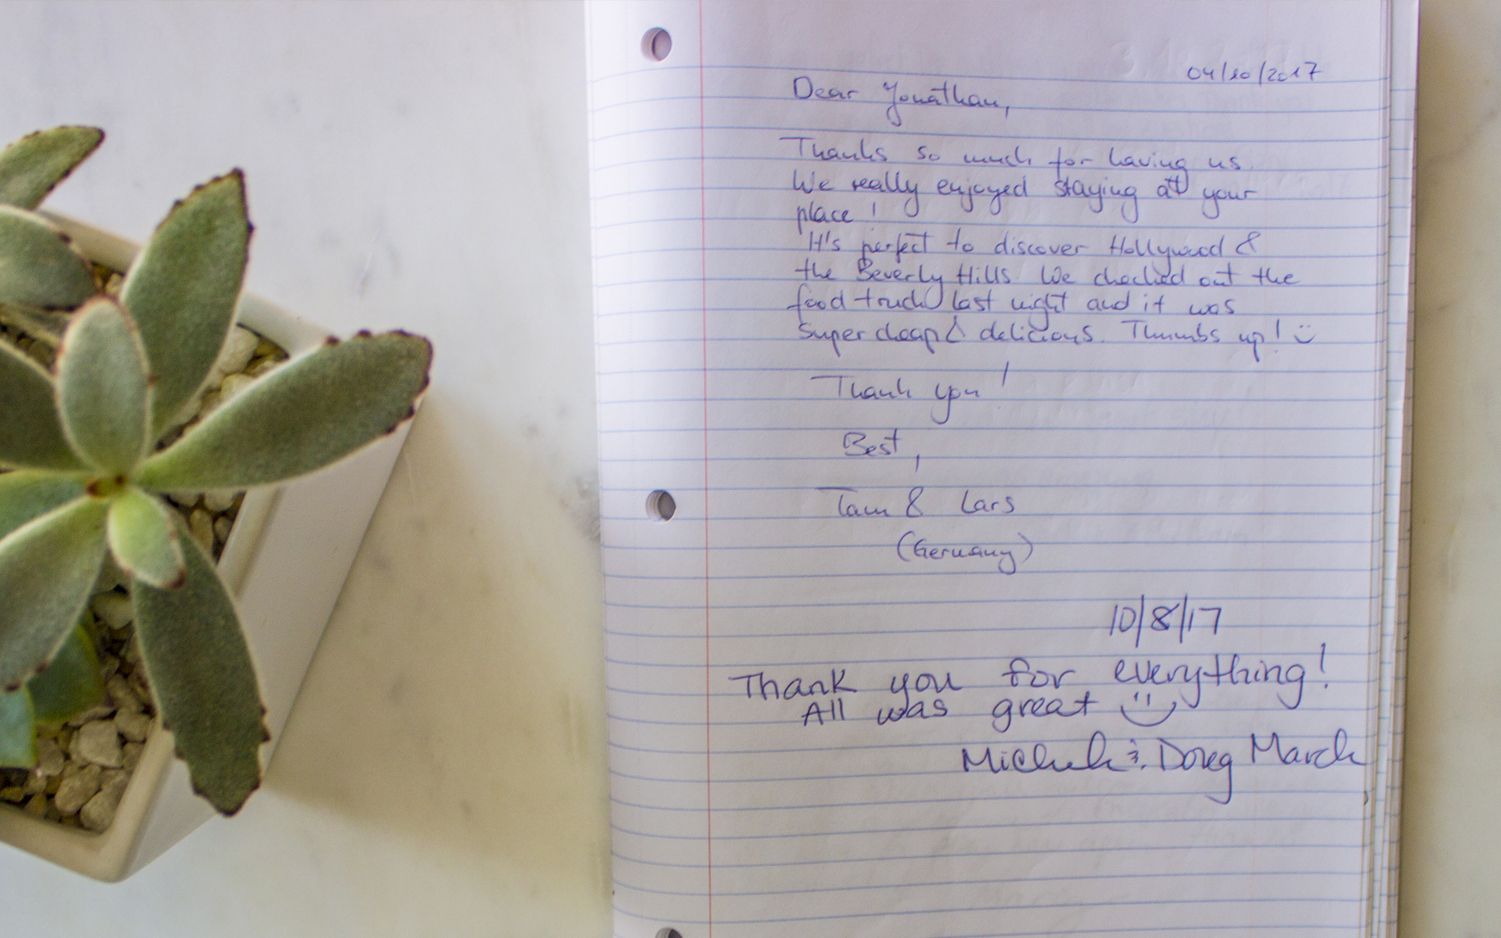 04/10/2017
Dear Jonathan,
Thanks so much for having us.
We really enjoyed staying at your
place!
It's perfect to discover Hollywood &
the Beverly Hills. We checked out the
food truck last night and it was
super cheap & delicious. Thumbs up! :)
Thank you!
Best,
Tam & Lars
(Germany)
10/8/17
Thank you for everything!
All was great :)
& Doug March